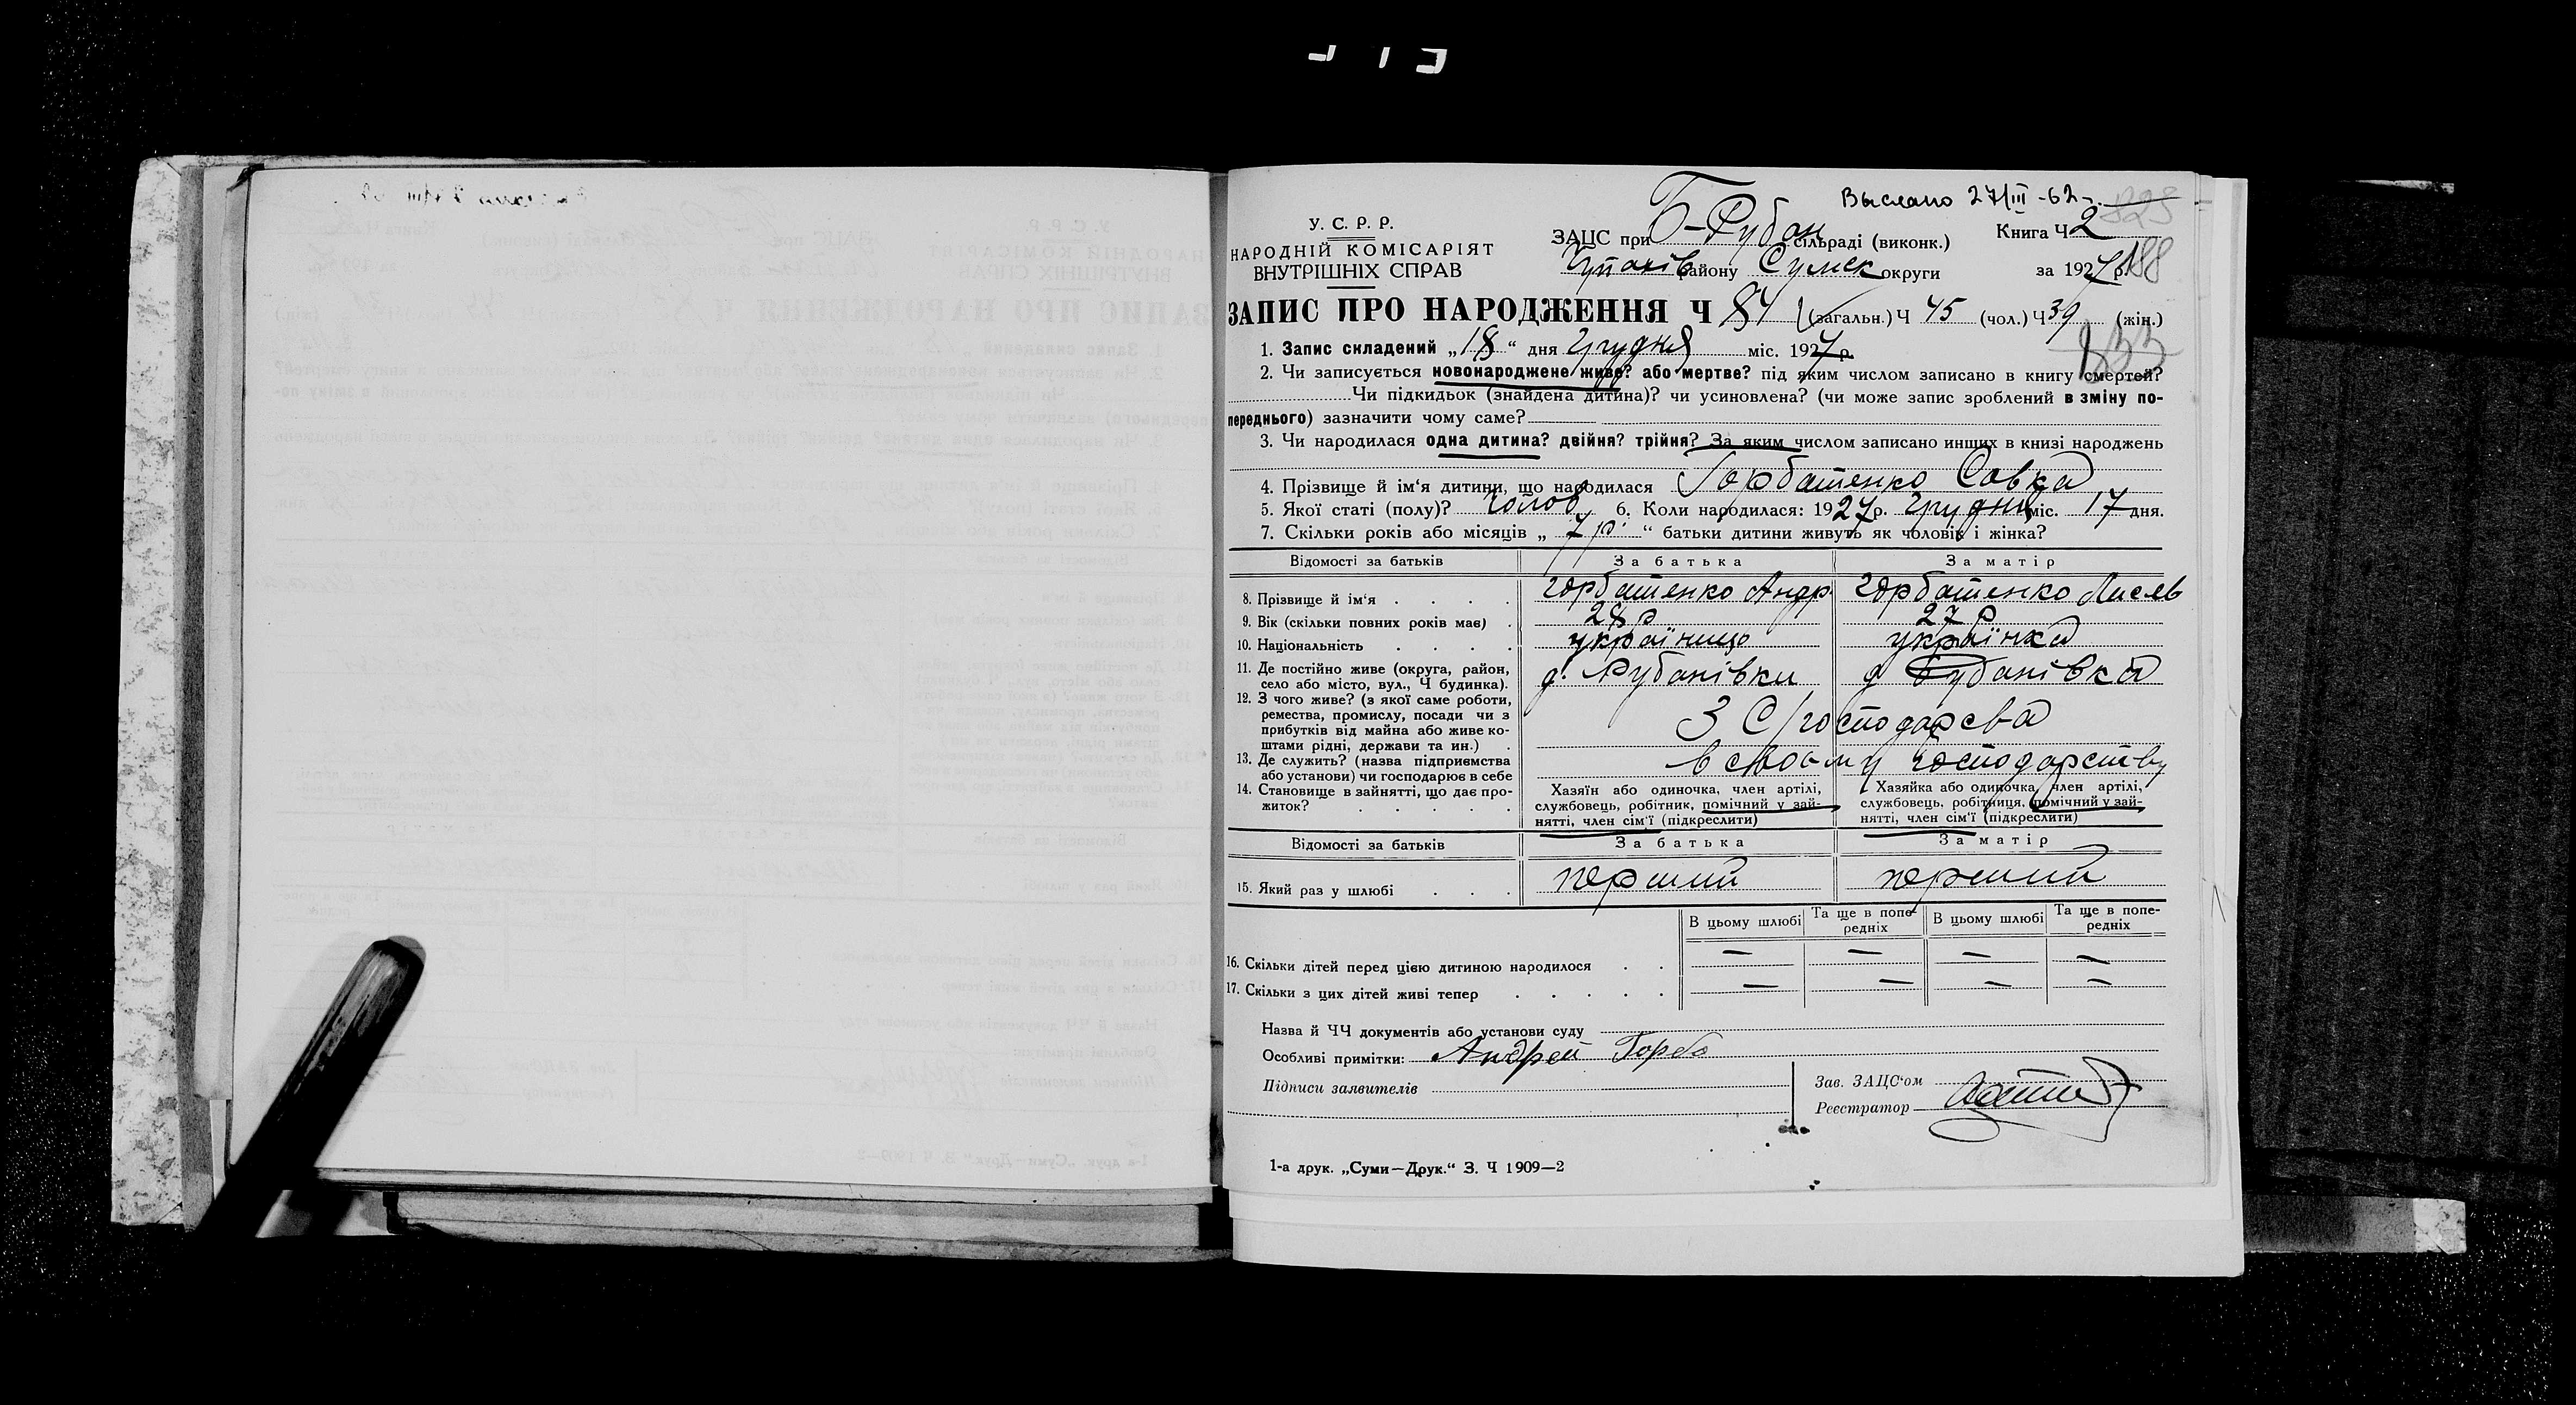 Выслано 27/III-62 г.
У. С. Р. Р.
НАРОДНІЙ КОМІСАРІЯТ
ВНУТРІШНІХ СПРАВ
ЗАЦС при Б-Рубан сільраді (виконк.) Книга Ч 2
району Сумск округи за 1927 р. 188
ЗАПИС ПРО НАРОДЖЕННЯ Ч 84 (загальн.) Ч 45 (чол.) Ч 39 (жін.)
1. Запис складений „18“ дня Грудня міс. 1927 р.
2. Чи записується новонароджене живе? або мертве? під яким числом записано в книгу смертей?
Чи підкидьок (знайдена дитина)? чи усиновлена? (чи може запис зроблений в зміну по-
переднього) зазначити чому саме?
3. Чи народилася одна дитина? двійня? трійня? За яким числом записано инших в книзі народжень
4. Прізвище й ім‘я дитини, що народилася Горбатенко Савка
5. Якої статі (полу)? чолов 6. Коли народилася: 1927 р. Грудня міс. 17 дня.
7. Скільки років або місяців „ 7 р “ батьки дитини живуть як чоловік і жінка?
Відомості за батьків За батька За матір
8. Прізвище й ім‘я . . . . Горбатенко Андр Горбатенко
9. Вік (скільки повних років має) . 28 р 27 р
10. Національність . . . . українцю українка
11. Де постійно живе (округа, район,
село або місто, вул., Ч будинка). д. Рубанівки д Рубанівка
12. З чого живе? (з якої саме роботи,
ремества, промислу, посади чи з
прибутків від майна або живе ко-
штами рідні, держави та ин.) . З С/господарсва
13. Де служить? (назва підприємства
або установи) чи господарює в себе в своьму господарству
14. Становище в зайнятті, що дає про-
житок? . . . . .
Хазяїн або одиночка, член артілі,
службовець, робітник, помічний у зай-
нятті, член сім‘ї (підкреслити)
Хазяйка або одиночка, член артілі,
службовець, робітниця, помічний у зай-
нятті, член сім‘ї (підкреслити)
Відомості за батьків За батька За матір
15. Який раз у шлюбі . . . перший перший
В цьому шлюбі Та ще в попе-
редніх В цьому шлюбі Та ще в попе-
редніх
16. Скільки дітей перед цією дитиною народилося . . — — — —
17. Скільки з цих дітей живі тепер . . . . . — — — —
Назва й ЧЧ документів або установи суду
Особливі примітки: Андрей Горба
Підписи заявителів
Зав. ЗАЦС‘ом
Реєстратор
1-а друк. „Суми—Друк.“ З. Ч 1909—2